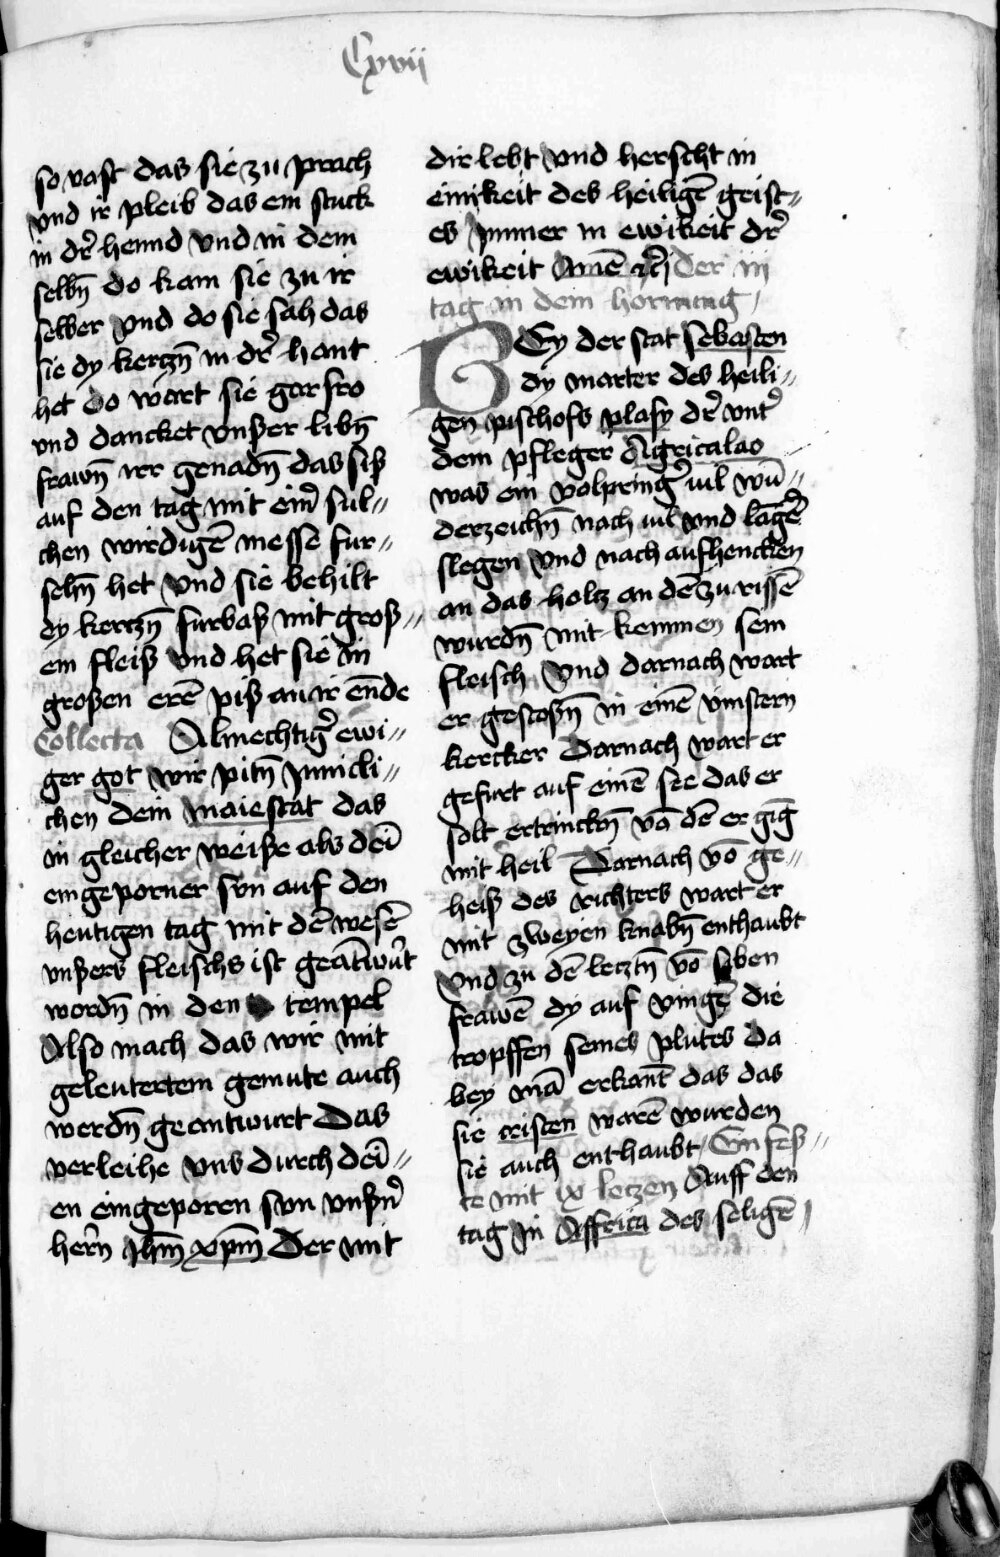 Cxvii
so vast das sie zu prach
vnd ir pleib das ein stuck
in dr̄ hennd vnd in dem
selbn̄ do kam sie zu ir
selber vnd do sie sah das
sie dy kerczn̄ in dr̄ hant
het do wart sie gar fro
vnd dancket vnßer libn̄
frawn̄ irr genadn̄ das siß
auf den tag mit eim̄ sul〃
chen wirdigē messe fur〃
sehn̄ het vnd sie behilt
dy kerczn̄ furbaß mit groß〃
em fleiß vnd het sie in
großen erē piß an ir ēnde
Collecta Almechtigr̄ ewi〃
ger got wir pitn̄ ynnicli〃
chen dein maiestat das
in gleicher weiße als dei̅
eingeporner sun auf den
heutigen tag mit dē wesē
vnßers fleischs ist geātwu̅rt
wordn̄ in den tempel
Also mach das wir mit
geleutertem gemute auch
werdn̄ geantwurt Das
verleihe vns durch dei̅〃
en eingeporen sun vnßn̄
hern̄ Jhm̄ xpm̄ Der mit
dir lebt vnd herscht in
einikeit des heiligē geist〃
es ymmer in ewikeit dr̄
ewikeit Amē ⁊c̄ der iii
tag in dem hornung
BEy der stat sebasten
dy marter des heili〃
gen pischofs plasy dr̄ vntr̄
dem pfleger Agricalao
was ein volpringr̄ vil wū〃
derzeichn̄ nach vil vnd lāgē
slegen vnd nach aufhencken
an das holcz an dē zu rissē
wurdn̄ mit kemmen sein
fleisch vnd darnach wart
er gestoßn̄ in einē vinstern
kercker Darnach wart er
gefurt auf einē see das er
solt ertrinckn̄ vō dē er gi̅g
mit heil Darnach vō ge〃
heiß des richters wart er
mit zweyen knabn̄ enthaubt
vnd zu dē lecztn̄ vō siben
frawē dy auf vingē die
tropffen seines plutes da
bey mā erkant das das
sie cristen warē wurden
sie auch enthaubt Ein fes〃
te mit ix leczen Auff den
tag in Affrica des seligē